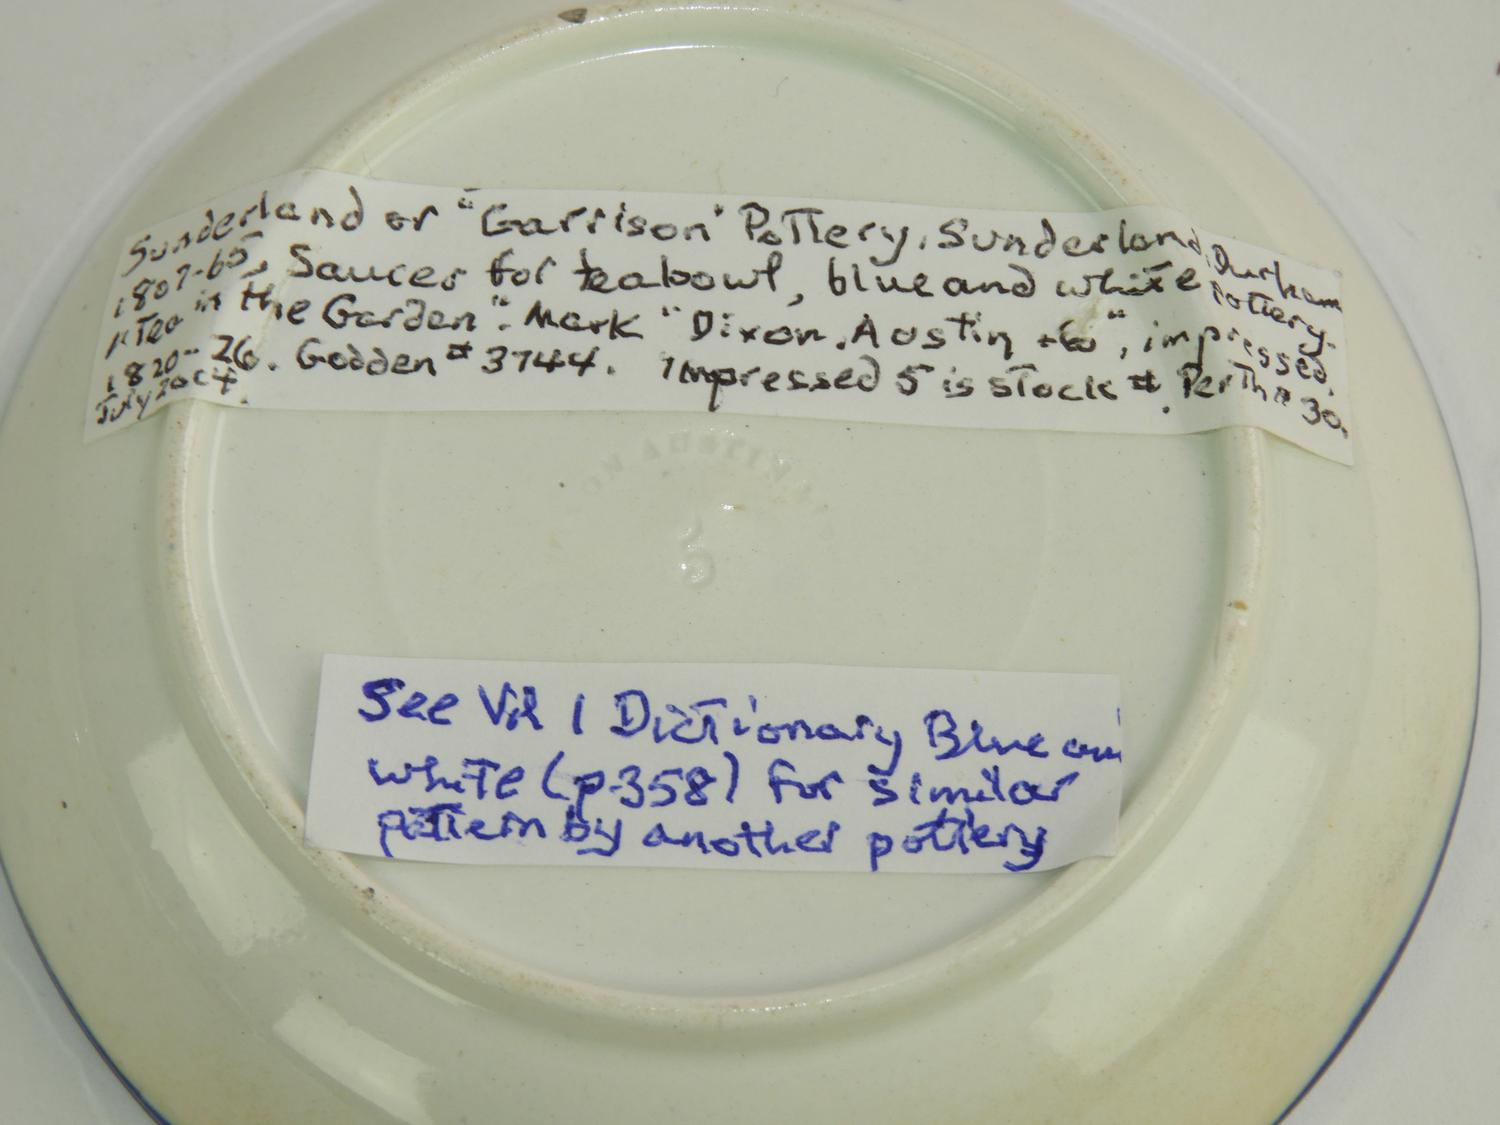 Sunderland or "Garrison" Pottery, Sunderland, Durham
1807-65, Saucer for teabowl, blue and white Pottery.
"Tea in the Garden". Mark "Dixon, Austin + Co", impressed,
1820-26. Godden # 3744. Impressed 5 is stock #. Perth # 30.
July 2004.
AUSTIN
5
See Vol 1 Dictionary Blue and
white (p.358) for similar
pattern by another pottery